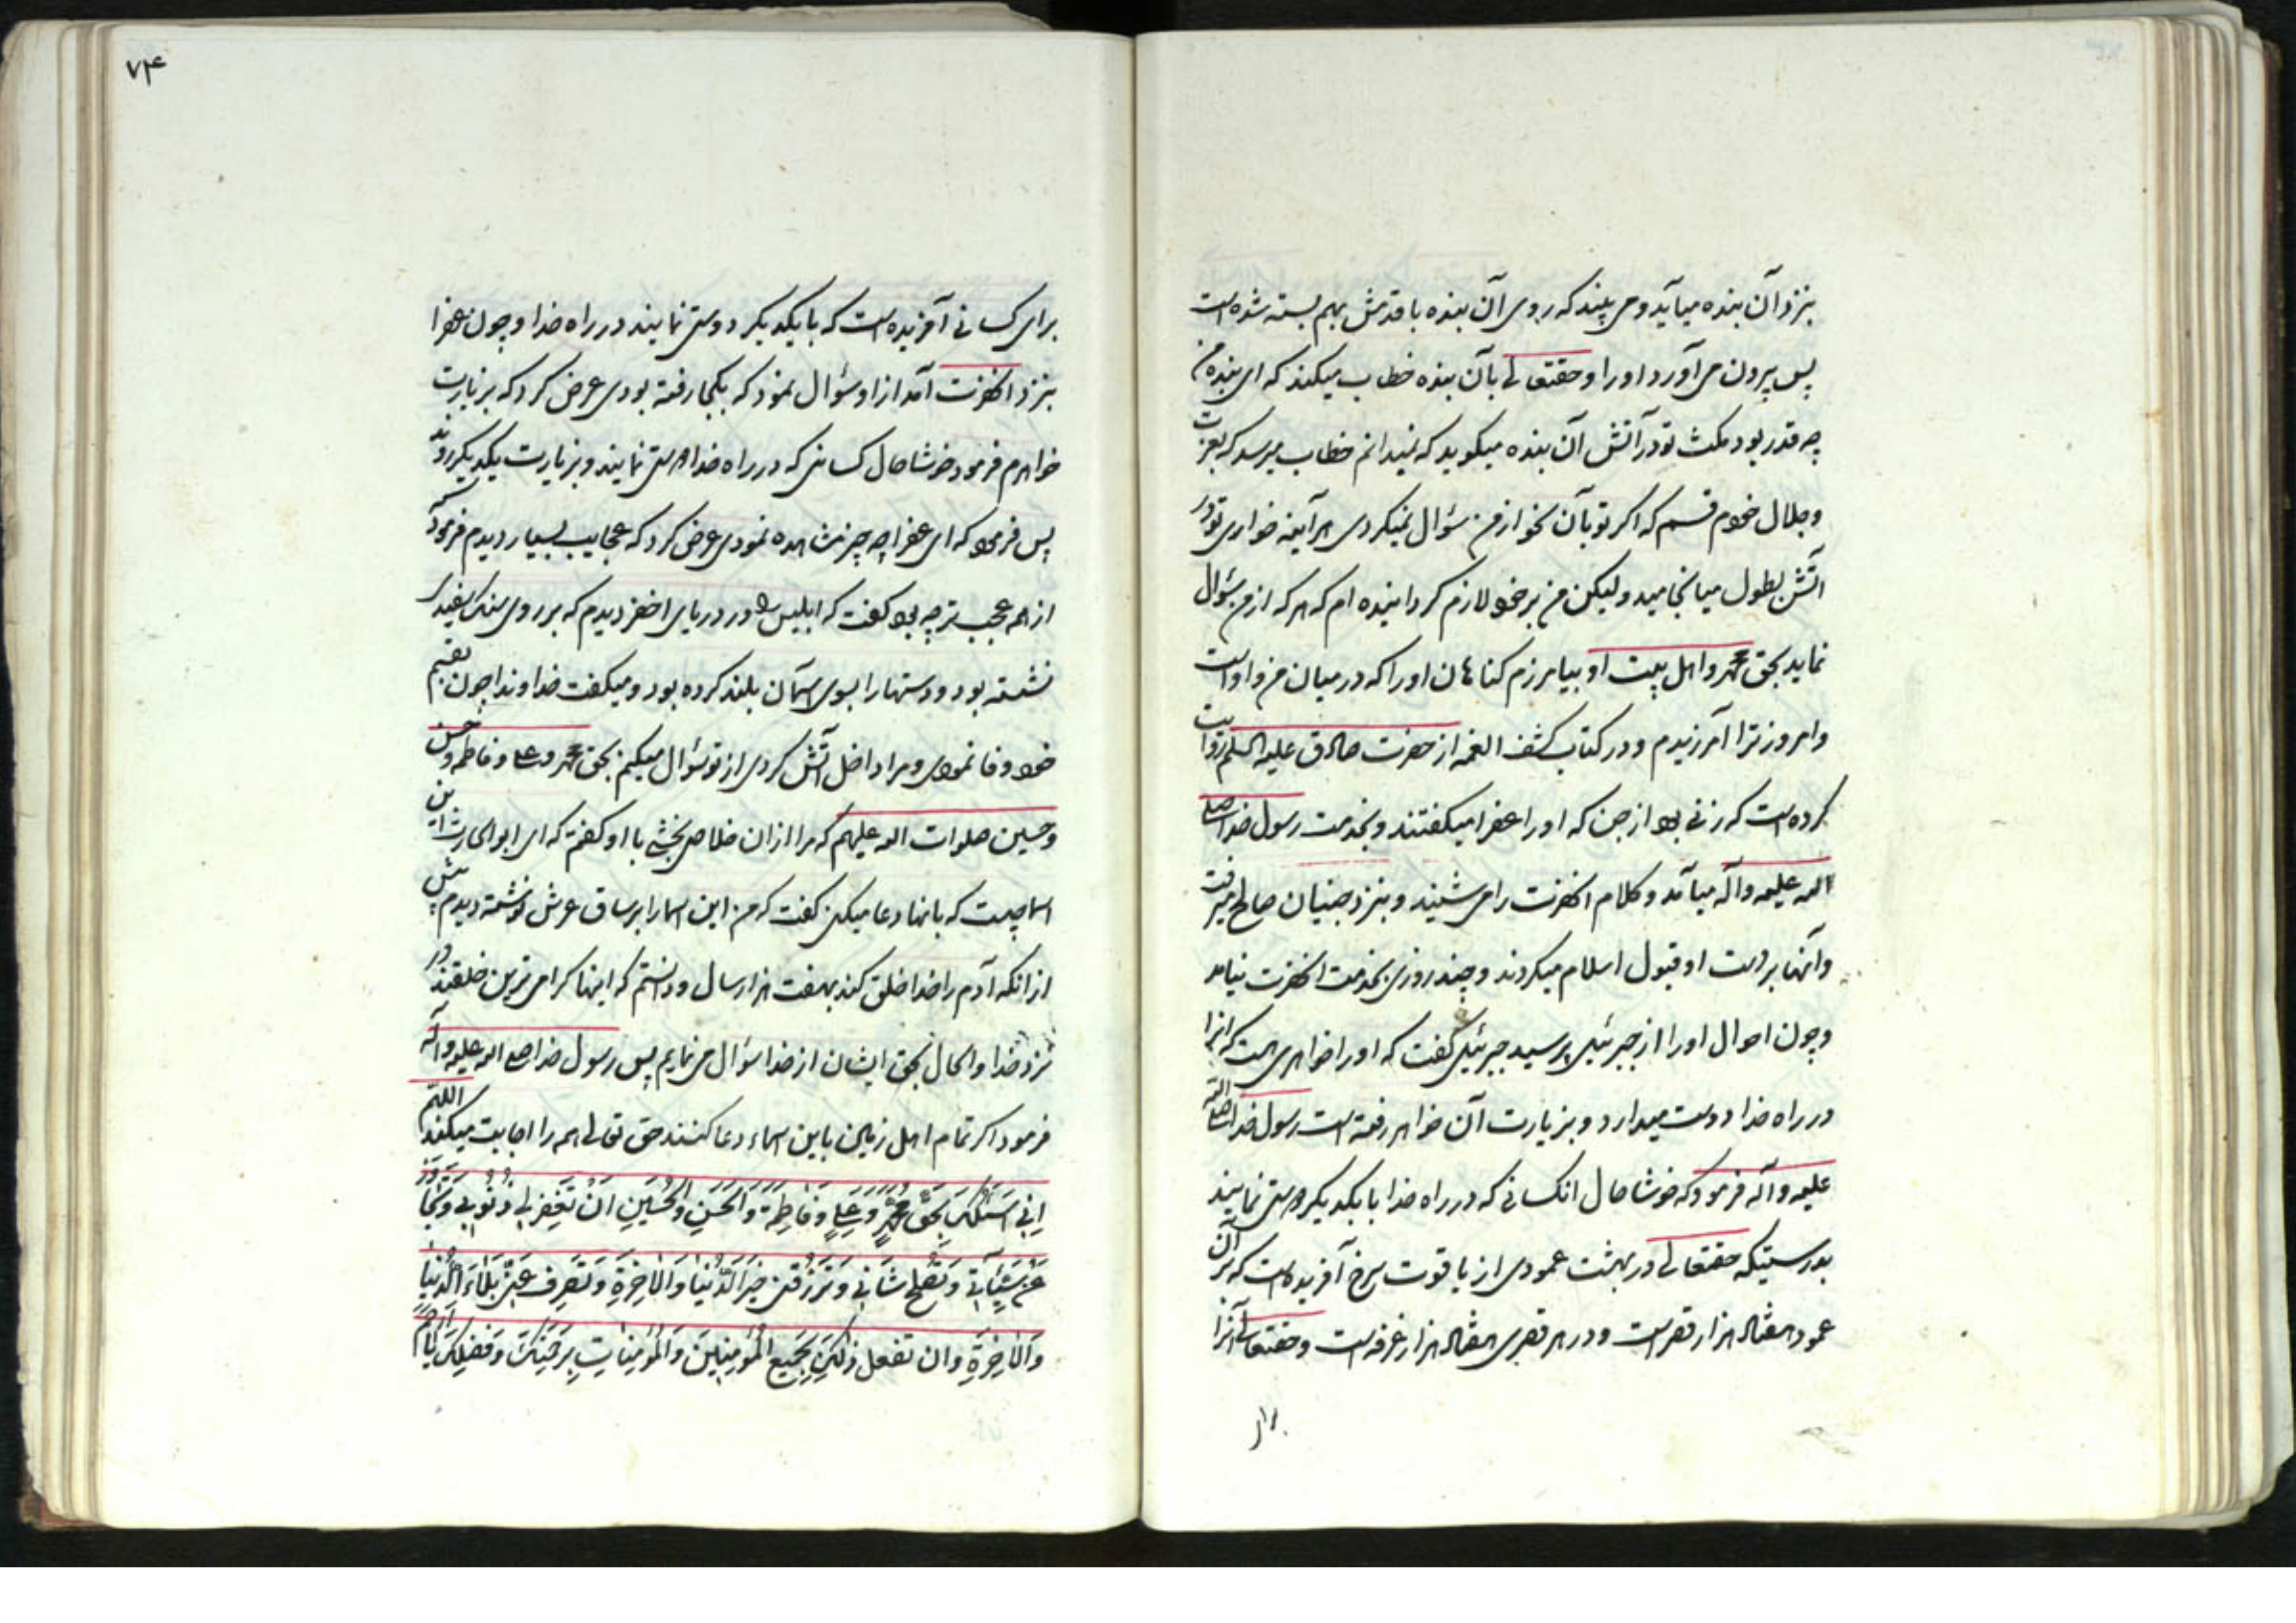 بنزد آن بنده میآید و می بیند که روی آن بنده با قدمش بهم بسته شده است
پس بیرون می آورد او را و حقتعالی بآن بنده خطاب میکند که ای بنده من
چه قدر بود مکث تو در آتش آن بنده میکوید که نمیدانم خطاب میرسد که بعزت
و جلال خودم قسم که اکر تو بآن نحو از من سؤال نمیکردی هر آینه خواری تو در
اتش بطول میانجامید ولیکن من بر خود لازم کردانیده ام که هر که از من سؤال
نماید بحق محمد و اهل بیت او بیامرزم کناهان او را که در میان من و او است
و امروز ترا آمرزیدم و در کتاب کشف الغمه از حضرت صادق علیه السلم روایت
کرده است که زنی بود از جن که او را عفرا میکفتند و بخدمت رسول خدا صلی
الله علیه و آله میآمد و کلام انحضرت را می شنید و بنزد جنیان صالح میرفت
و آنها بر دست او قبول اسلام میکردند و چند روزی بخدمت انحضرت نیامد
و چون احوال او را از جبرئیل پرسید جبرئیل کفت که او را خواهری هست که انرا
در راه خدا دوست میدارد و بزیارت آن خواهر رفته است رسول خدا صلی الله
علیه و آله فرمود که خوشا حال انکسانی که در راه خدا با یکدیکر دوستی نمایند
بدرستیکه حقتعالی در بهشت عمودی از یاقوت سرخ آفریده است که بر آن
عمود هفتاد هزار قصر است و در هر قصری هفتاد هزار غرفه است و حقتعالی آنرا
برای
۷۴
برای کسانی آفریده است که با یکدیکر دوستی نمایند در راه خدا و چون عفرا
بنزد انحضرت آمد از او سؤال نمود که بکجا رفته بودی عرض کرد که بزیارت
خواهرم فرمود خوشا حال کسانی که در راه خدا دوستی نمایند و بزیارت یکدیکر روند
پس فرمود که ای عفرا چه چیز مشاهده نمودی عرض کرد که عجایب بسیار دیدم فرمود که
از همه عجیب تر چه بود کفت که ابلیس را در دریای اخضر دیدم که بر روی سنک سفیدی
نشسته بود و دستها را بسوی آسمان بلند کرده بود و میکفت خداوندا چون بقسم
خود وفا نمودی و مرا داخل آتش کردی از تو سؤال میکنم بحق محمد و علی و فاطمه و حسن
و حسین صلوات الله علیهم که مرا از ان خلاص بخشی با او کفتم که ای ابو الحارث این
اسما چیست که بانها دعا میکنی کفت که من این اسما را بر ساق عرش نوشته دیدم پیش
از انکه آدم را خدا خلق کند بهفت هزار سال و دانستم که اینها کرامی ترین خلقند در
نزد خدا و الحال بحق ایشان از خدا سؤال می نمایم پس رسول خدا صلی الله علیه و آله
فرمود اکر تمام اهل زمین باین اسماء دعا کنند حق تعالی همه را اجابت میکند اللهم
اِنی اَسئلک بحق محمدٍ و علیٍ و فاطمة و الحسنِ و الحُسینِ ان تغفِر لی ذنُوبی و تَتَجاوَزَ
عن سَیّئاتی و تُصلح شَانی و تَرزُقنی خیرَ الدُنیا و الاخِرةِ و تَصرِف عَنّی بَلاءَ الدُنیا
وَالاخِرةِ و ان تفعل ذلکَ بِجَمیعِ المُؤمِنینَ وَالمُؤمِناتِ بِرحمتِکَ وَ فَضلِکَ یا اَرحَم